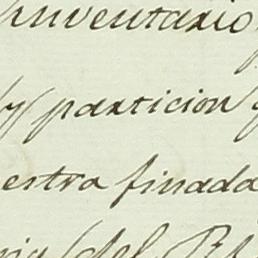 inventario
y particion
estra finada
del